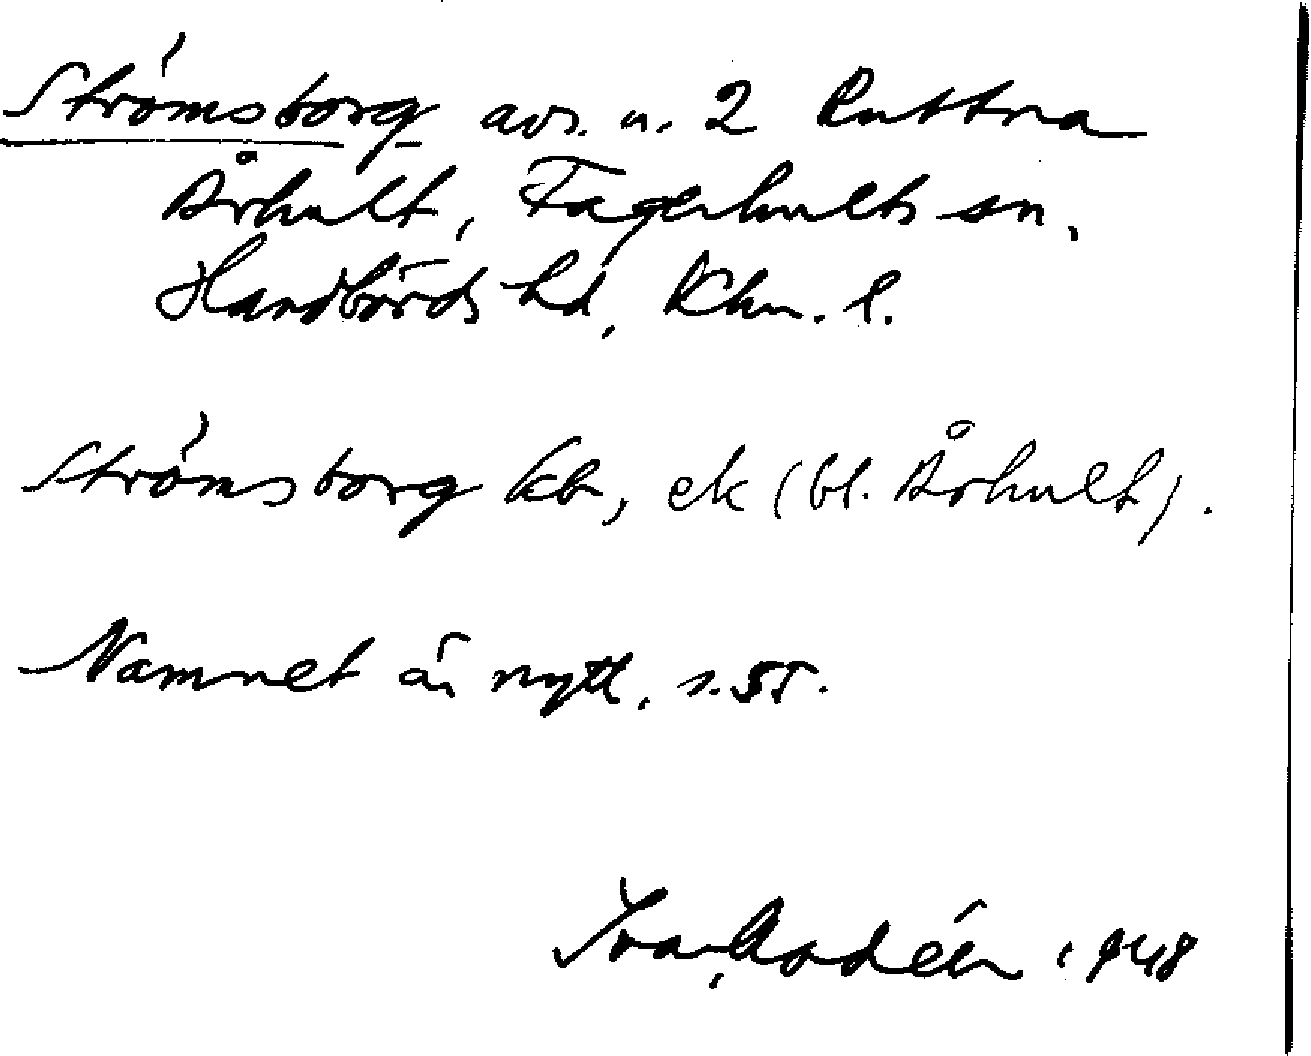 Strömsborg avs. u. 2 Ruttna
Århult, Fagerhults sn.
Handbörds hd, Klm. l.
Strömsborg kb, ek (bl. Århult).
Namnet är nytt, s. ST.
Ivar Modéer 1948